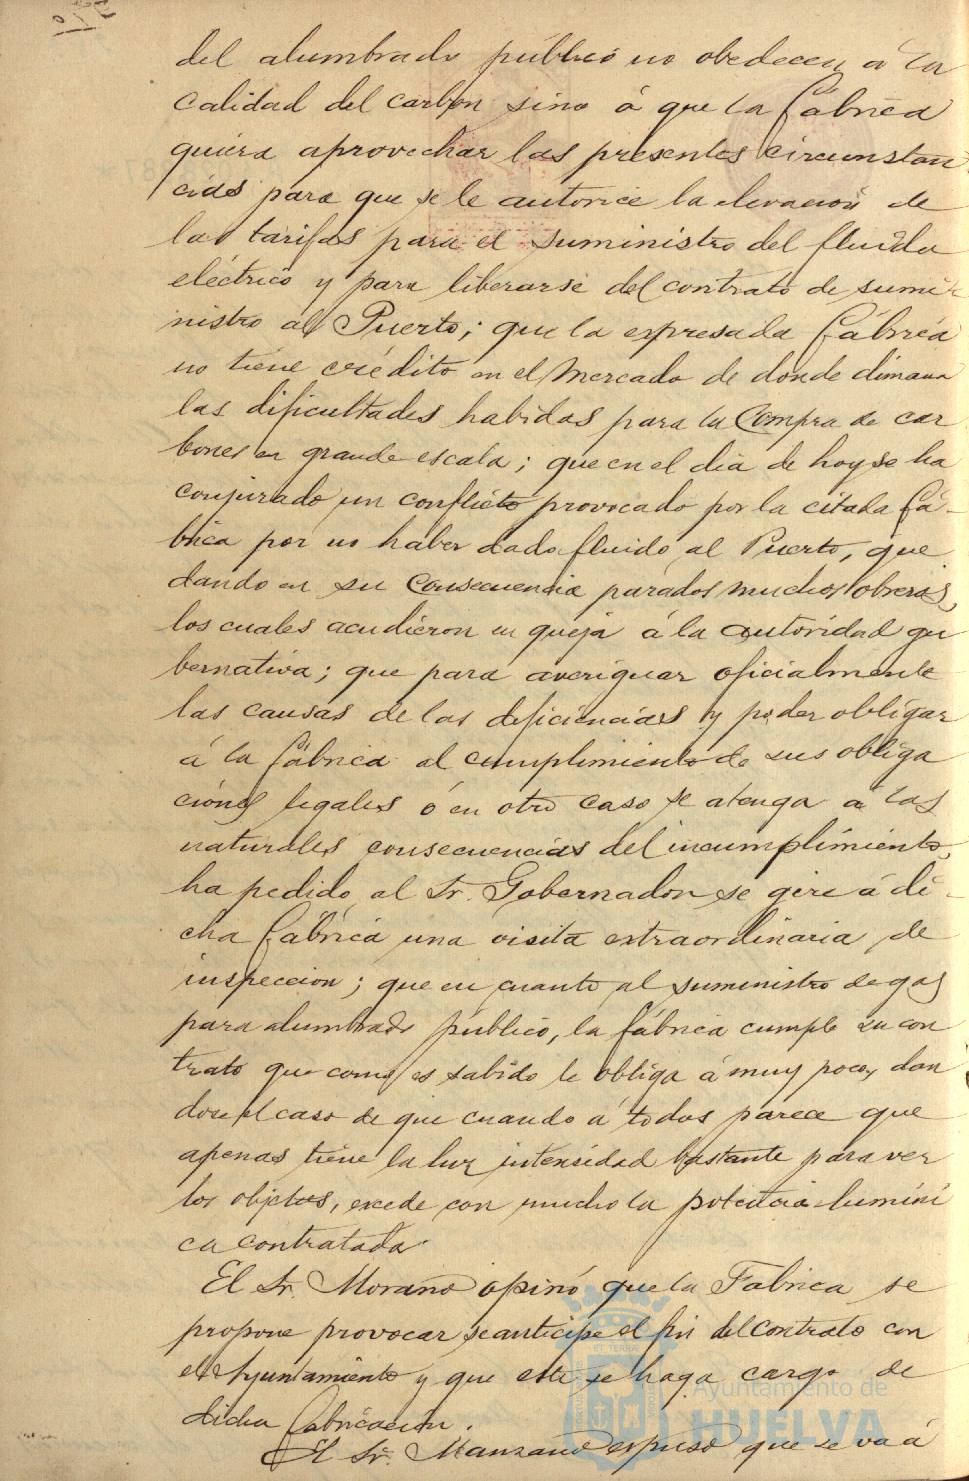 del alumbrado público no obedecen a la
calidad del carbon sino á que la fábrica
quiera aprovechar las presentes circunstan
cias para que se le autorice la elevación de
las tarifas para el suministro del fluido
eléctrico y para liberarse del contrato de sumi
nistro al Puerto; que la expresada fábrica
no tiene crédito en el Mercado de donde dimana
las dificultades habidas para la Compra de car
bones en grande escala; que en el dia de hoy se ha
conjurado un conflicto provocado por la citada fá-
brica por no haber dado fluido al Puerto, que
dando en su consecuencia parados muchos obreros,
los cuales acudieron en queja á la autoridad gu
bernativa; que para averiguar oficialmente
las causas de las deficiencias y poder obligar
á la fábrica al cumplimiento de sus obliga
ciones legales ó en otro caso se atenga a las
naturales consecuencias del incumplimiento,
ha pedido al Sr. Gobernador se gire á di-
cha fábrica una visita extraordinaria de
inspeccion; que en cuanto al suministro de gas
para alumbrado público, la fábrica cumple su con
trato que como es sabido le obliga á muy poco, dan
dose el caso de que cuando á todos parece que
apenas tiene la luz intensidad bastante para ver
los objetos, excede con mucho la potencia lumíni
ca contratada.
El Sr. Morano opinó que la Fabrica se
propone provocar se anticipe el fin del contrato con
el Ayuntamiento y que este se haga cargo de
dicha fabricación.
El Sr. Manzano expuso que se va á
Ayuntamiento de
HUELVA